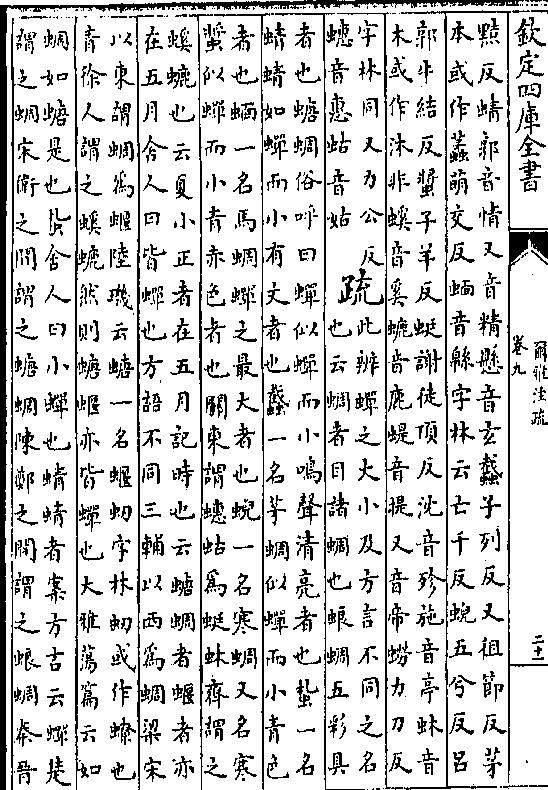 欽定四庫全書
爾雅注疏
卷九
二十一
點反蜻郭音情又音精懸音玄蠽子列反又徂節反茅
本或作蟊萌交反蝒音緜字林云亡千反蜺五兮反呂
郭牛結反螿子羊反蜓謝徒頂反沈音殄施音亭蚞音
木或作沐非螇音奚螰音鹿蝭音提又音帝蟧力刀反
字林同又力公反
蟪音惠蛄音姑
疏
此辨蟬之大小及方言不同之名
也云蜩者目諸蜩也蜋蜩五彩具
者也螗蜩俗呼曰蟬似蟬而小鳴聲清亮者也蚻一名
蜻蜻如蟬而小有文者也蠽一名茅蜩似蟬而小青色
者也蝒一名馬蜩蟬之最大者也蜺一名寒蜩又名寒
螿似蟬而小青赤色者也關東謂蟪蛄爲蜓蚞齊謂之
螇螰也云夏小正者在五月記時也云螗蜩者蝘者亦
在五月舍人曰皆蟬也方語不同三輔以西爲蜩梁宋
以東謂蜩爲蝘陸璣云螗一名蝘虭字林虭或作蟟也
青徐人謂之螇螰然則螗蝘亦皆蟬也大雅蕩篇云如
蜩如螗是也蚻舍人曰小蟬也蜻蜻者案方古云蟬楚
謂之蜩宋衛之間謂之螗蜩陳鄭之間謂之蜋蜩秦晉